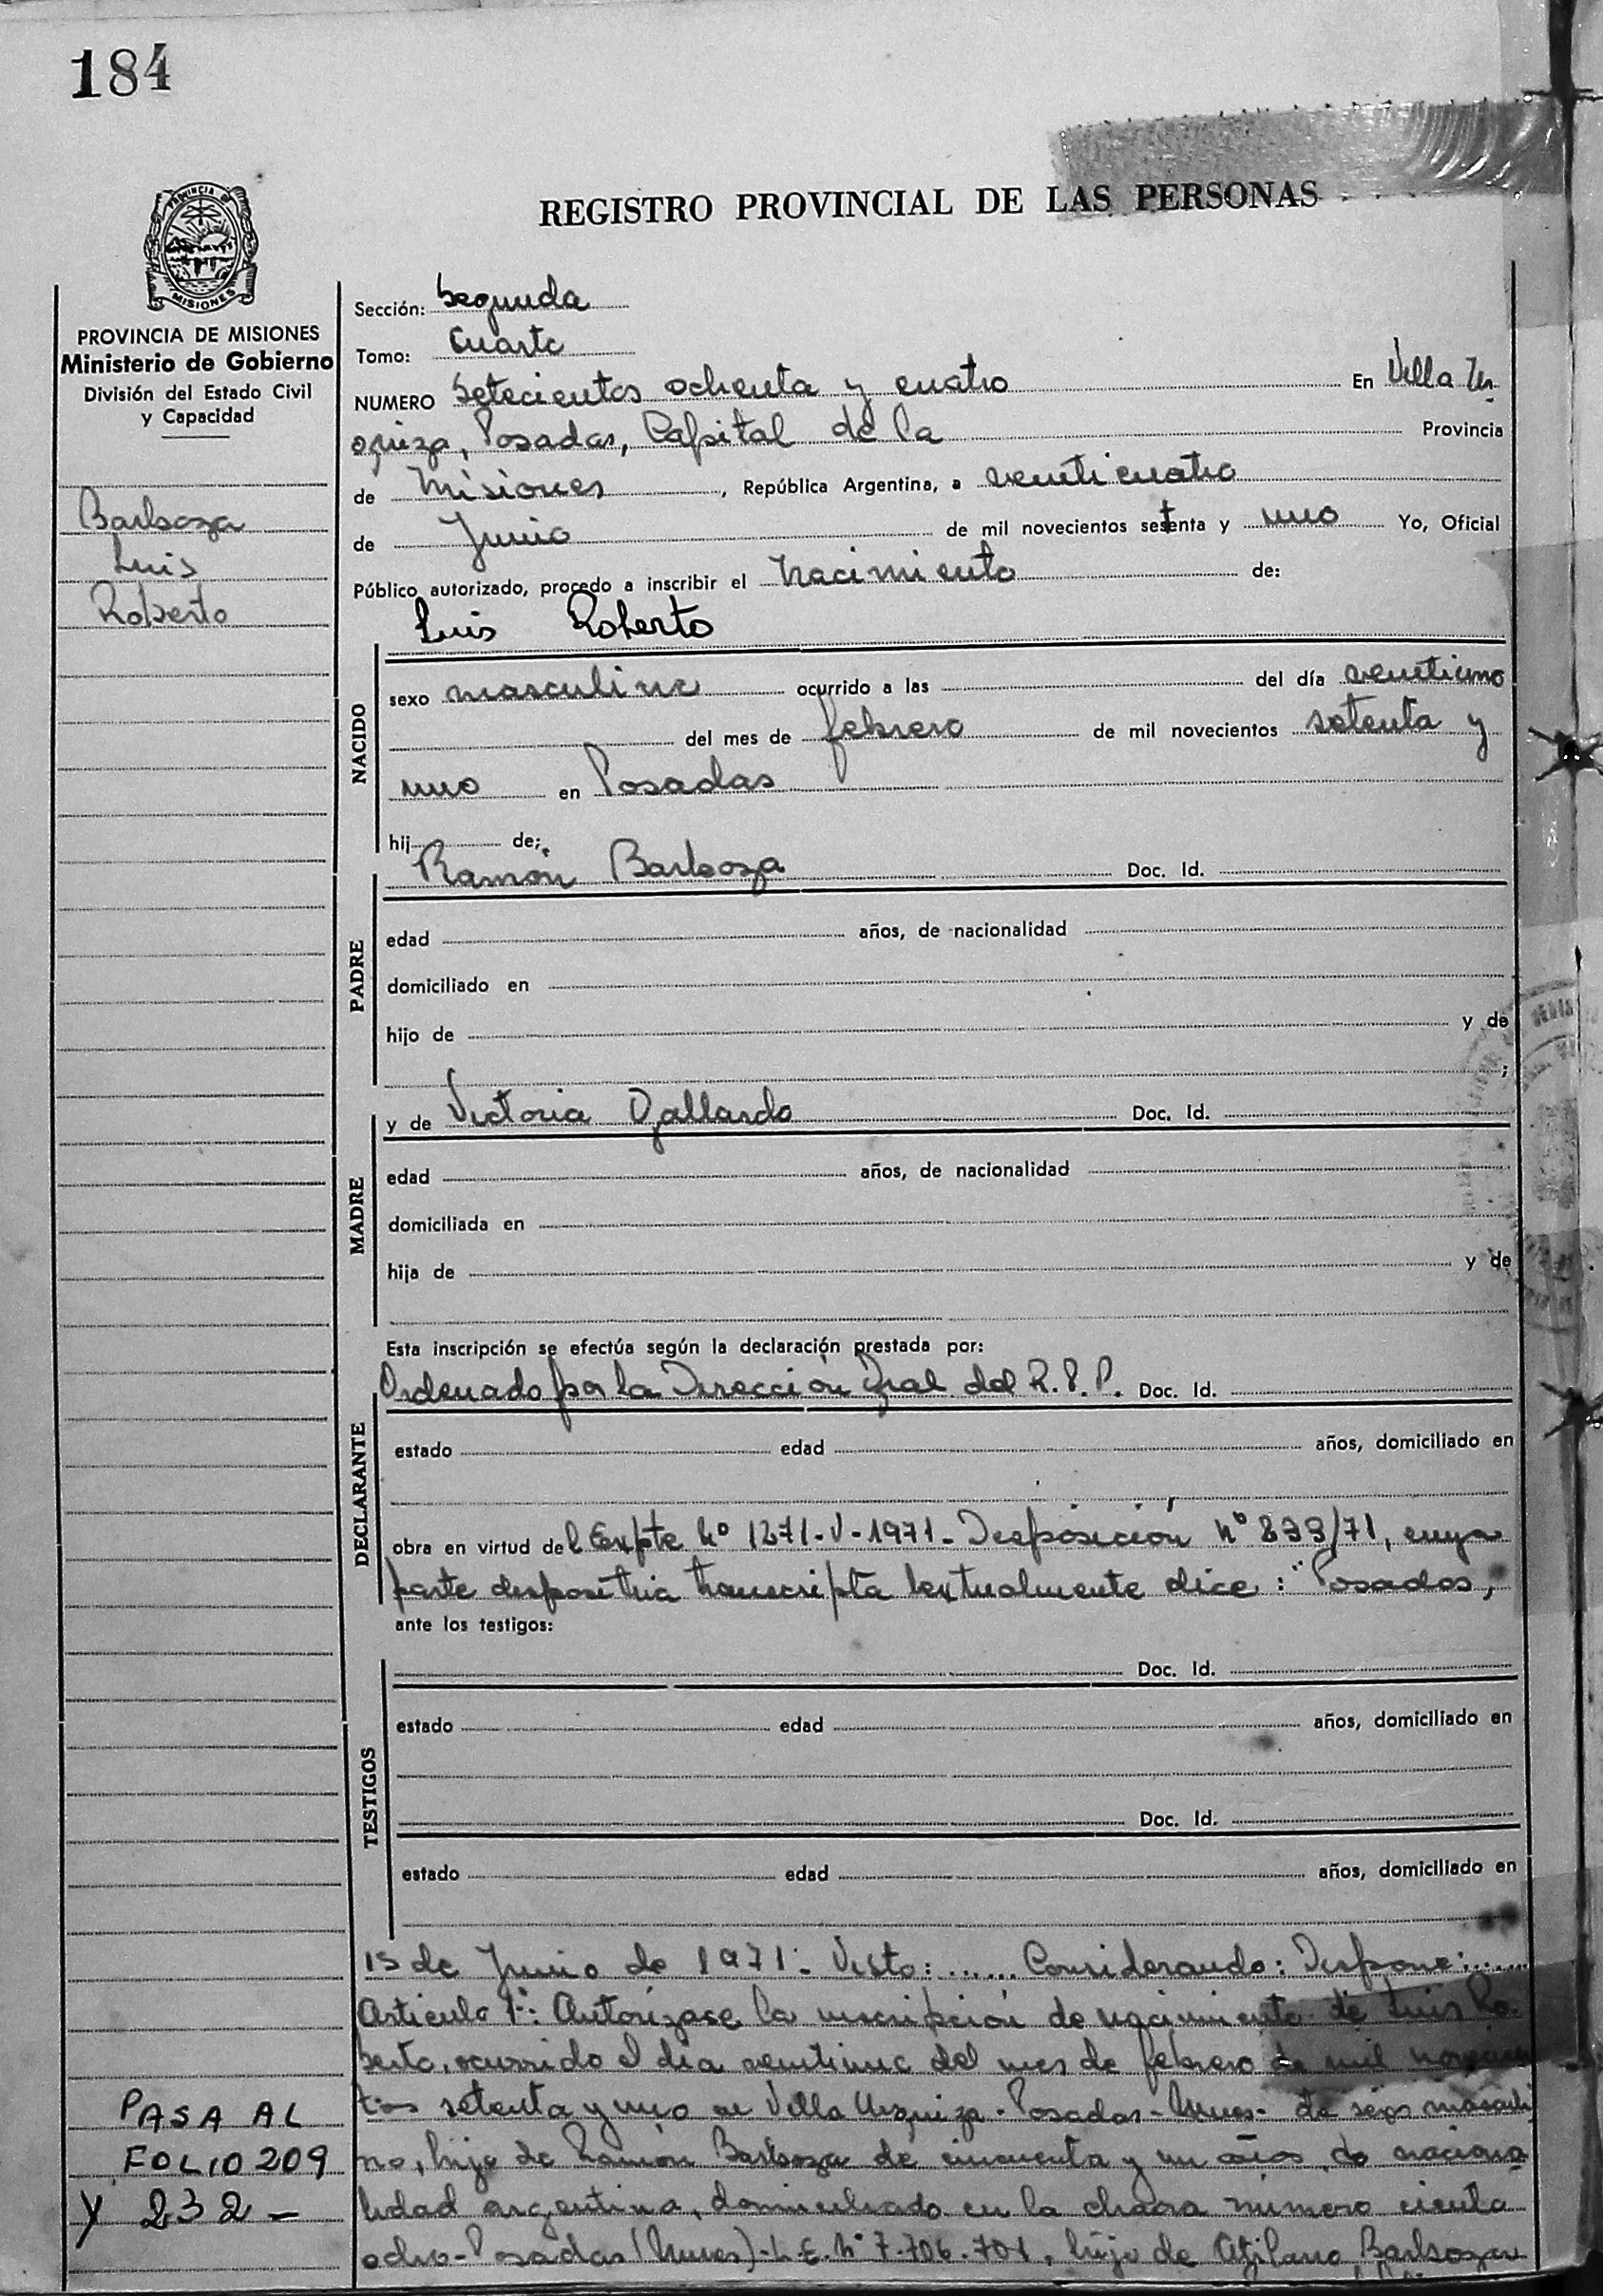 184
REGISTRO PROVINCIAL DE LAS PERSONAS
PROVINCIA DE
MISIONES
PROVINCIA DE MISIONES
Ministerio de Gobierno
División del Estado Civil
y Capacidad
Barboza
Luis
Roberto
Sección: Segunda
Tomo: Cuarto
NUMERO Setecientos ochenta y cuatro En Villa Ur
quiza, Posadas, Capital de la Provincia
de Misiones, República Argentina, a veinticuatro
de Junio de mil novecientos setenta y uno Yo, Oficial
Público autorizado, procedo a inscribir el Nacimiento de:
Luis Roberto
NACIDO
sexo masculino ocurrido a las del día veintiuno
del mes de febrero de mil novecientos setenta y
uno en Posadas
hij de:
PADRE
Ramón Barboza Doc. Id.
edad años, de nacionalidad
domiciliado en
hijo de y de
;
MADRE
y de Victoria Gallardo Doc. Id.
edad años, de nacionalidad
domiciliada en
hija de y de
Esta inscripción se efectúa según la declaración prestada por:
DECLARANTE
Ordenado por la Dirección Gral del R.P.P. Doc. Id.
estado edad años, domiciliado en
obra en virtud del Expte Nº 1271-V-1971- Disposición Nº 833/71, cuya
parte dispositiva transcripta textualmente dice: "Posadas,
ante los testigos:
TESTIGOS
Doc. Id.
estado edad años, domiciliado en
Doc. Id.
estado edad años, domiciliado en
15 de Junio de 1971. Visto: ...... Considerando: Dispone: ......
Articulo 1º: Autorízase la inscripción de nacimiento de Luis Ro
berto, ocurrido el día veintiuno del mes de febrero de mil novecien
tos setenta y uno en Villa Urquiza-Posadas-Mnes- de sexo masculi
no, hijo de Ramón Barboza de cincuenta y un años, de naciona
lidad argentina, domiciliado en la chacra número ciento
ocho-Posadas (Mnes)-L.E. Nº 7.706.701, hijo de Barboza
PASA AL
FOLIO 209
Y 232-